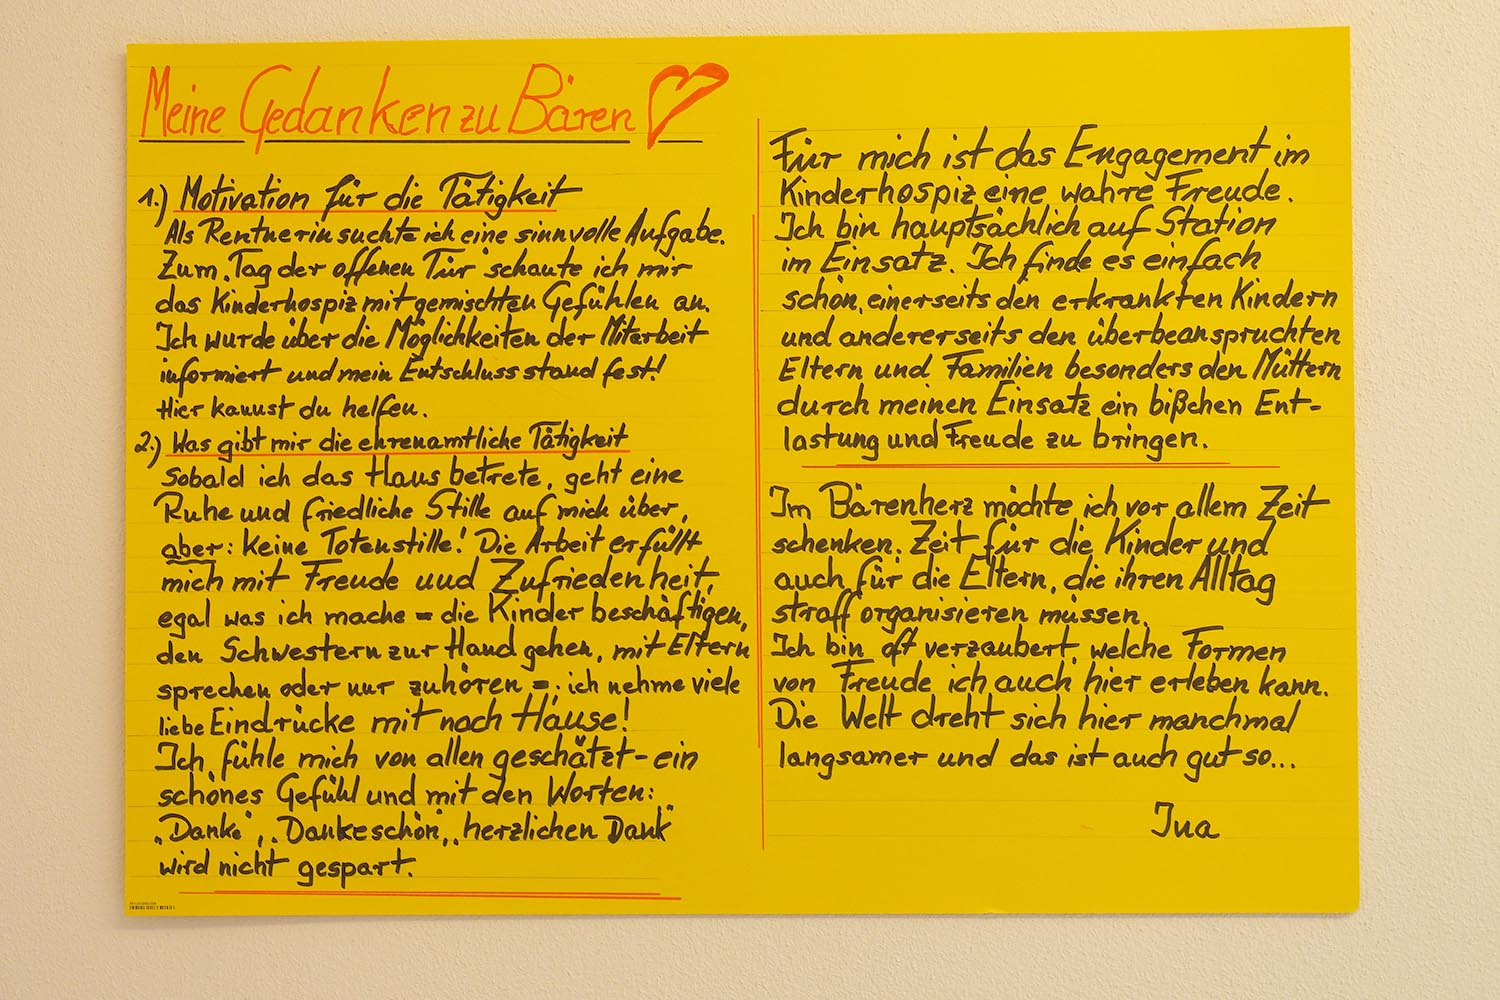 Meine Gedanken zu Bären
1.) Motivation für die Tätigkeit
Als Rentnerin suchte ich eine sinnvolle Aufgabe.
Zum „Tag der offenen Tür" schaute ich mir
das Kinderhospiz mit gemischten Gefühlen an.
Ich wurde über die Möglichkeiten der Mitarbeit
informiert und mein Entschluss stand fest!
Hier kannst du helfen.
2.) Was gibt mir die ehrenamtliche Tätigkeit
Sobald ich das Haus betrete, geht eine
Ruhe und friedliche Stille auf mich über,
aber: keine Totenstille! Die Arbeit erfüllt
mich mit Freude und Zufriedenheit,
egal was ich mache = die Kinder beschäftigen,
den Schwestern zur Hand gehen, mit Eltern
sprechen oder nur zuhören =; ich nehme viele
liebe Eindrücke mit nach Hause!
Ich fühle mich von allen geschätzt - ein
schönes Gefühl und mit den Worten:
„Danke", „Dankeschön", „herzlichen Dank"
wird nicht gespart.
Für mich ist das Engagement im
Kinderhospiz eine wahre Freude.
Ich bin hauptsächlich auf Station
im Einsatz. Ich finde es einfach
schön, einerseits den erkrankten Kindern
und andererseits den überbeanspruchten
Eltern und Familien besonders den Müttern
durch meinen Einsatz ein bißchen Ent-
lastung und Freude zu bringen.
Im Bärenherz möchte ich vor allem Zeit
schenken. Zeit für die Kinder und
auch für die Eltern, die ihren Alltag
straff organisieren müssen.
Ich bin oft verzaubert, welche Formen
von Freude ich auch hier erleben kann.
Die Welt dreht sich hier manchmal
langsamer und das ist auch gut so...
Ina